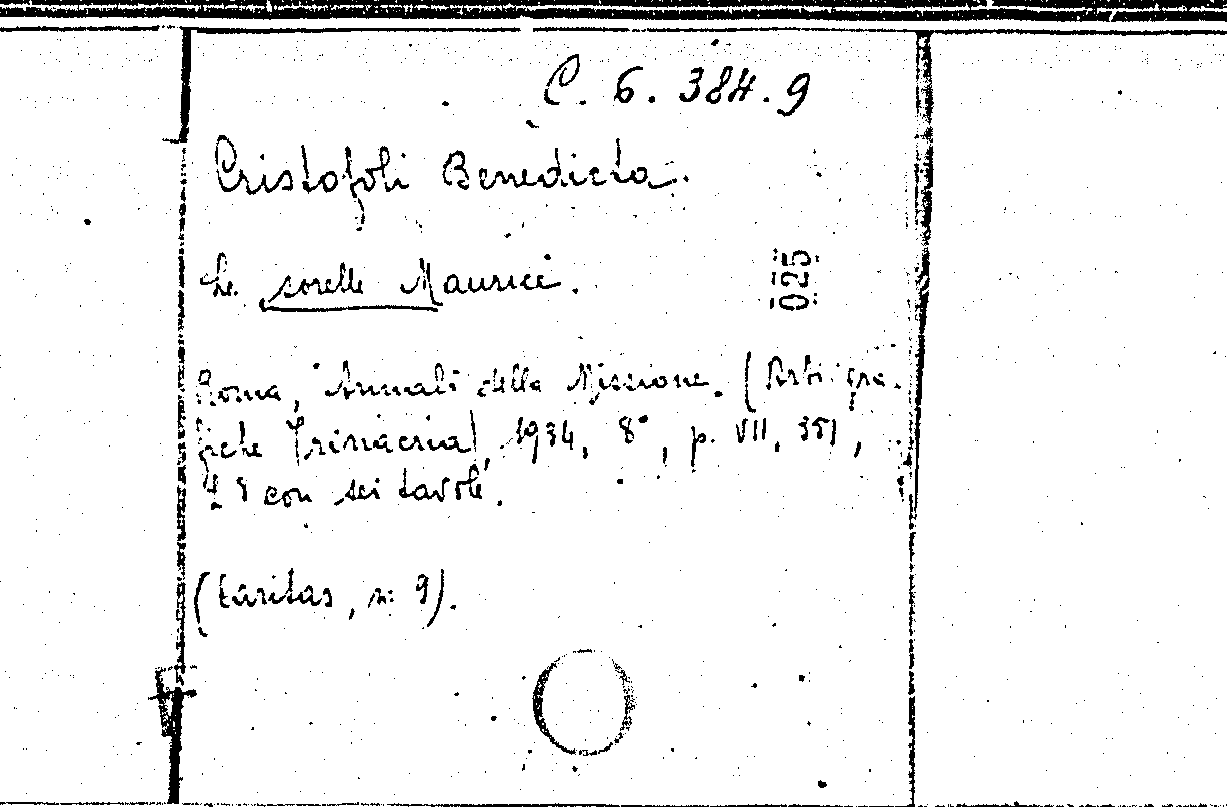 C. 6. 384. 9
Cristofoli Benedicta.
Le sorelle Maurici.
025
Roma, "Annali della Missione. (Arti gra-
fiche Trinacria), 1934, 8°, p. VII, 351,
con sei tavole.
(Caritas, n: 9).